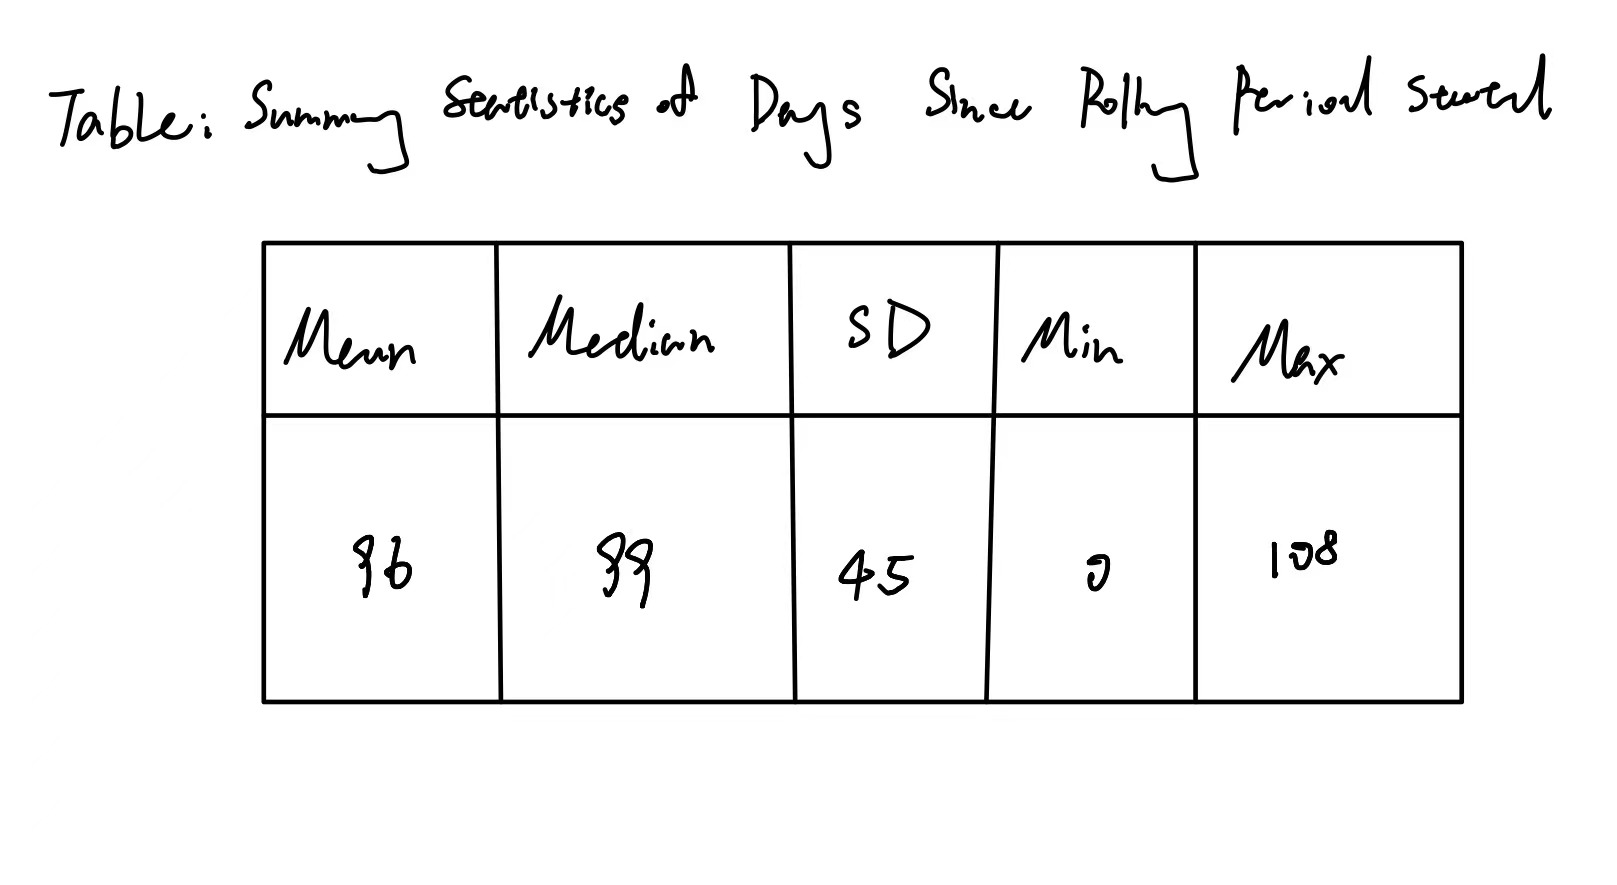 Table: Summary Statistics of Days Since Rolling Period Started
Mean Median SD Min Max
96 99 45 0 108